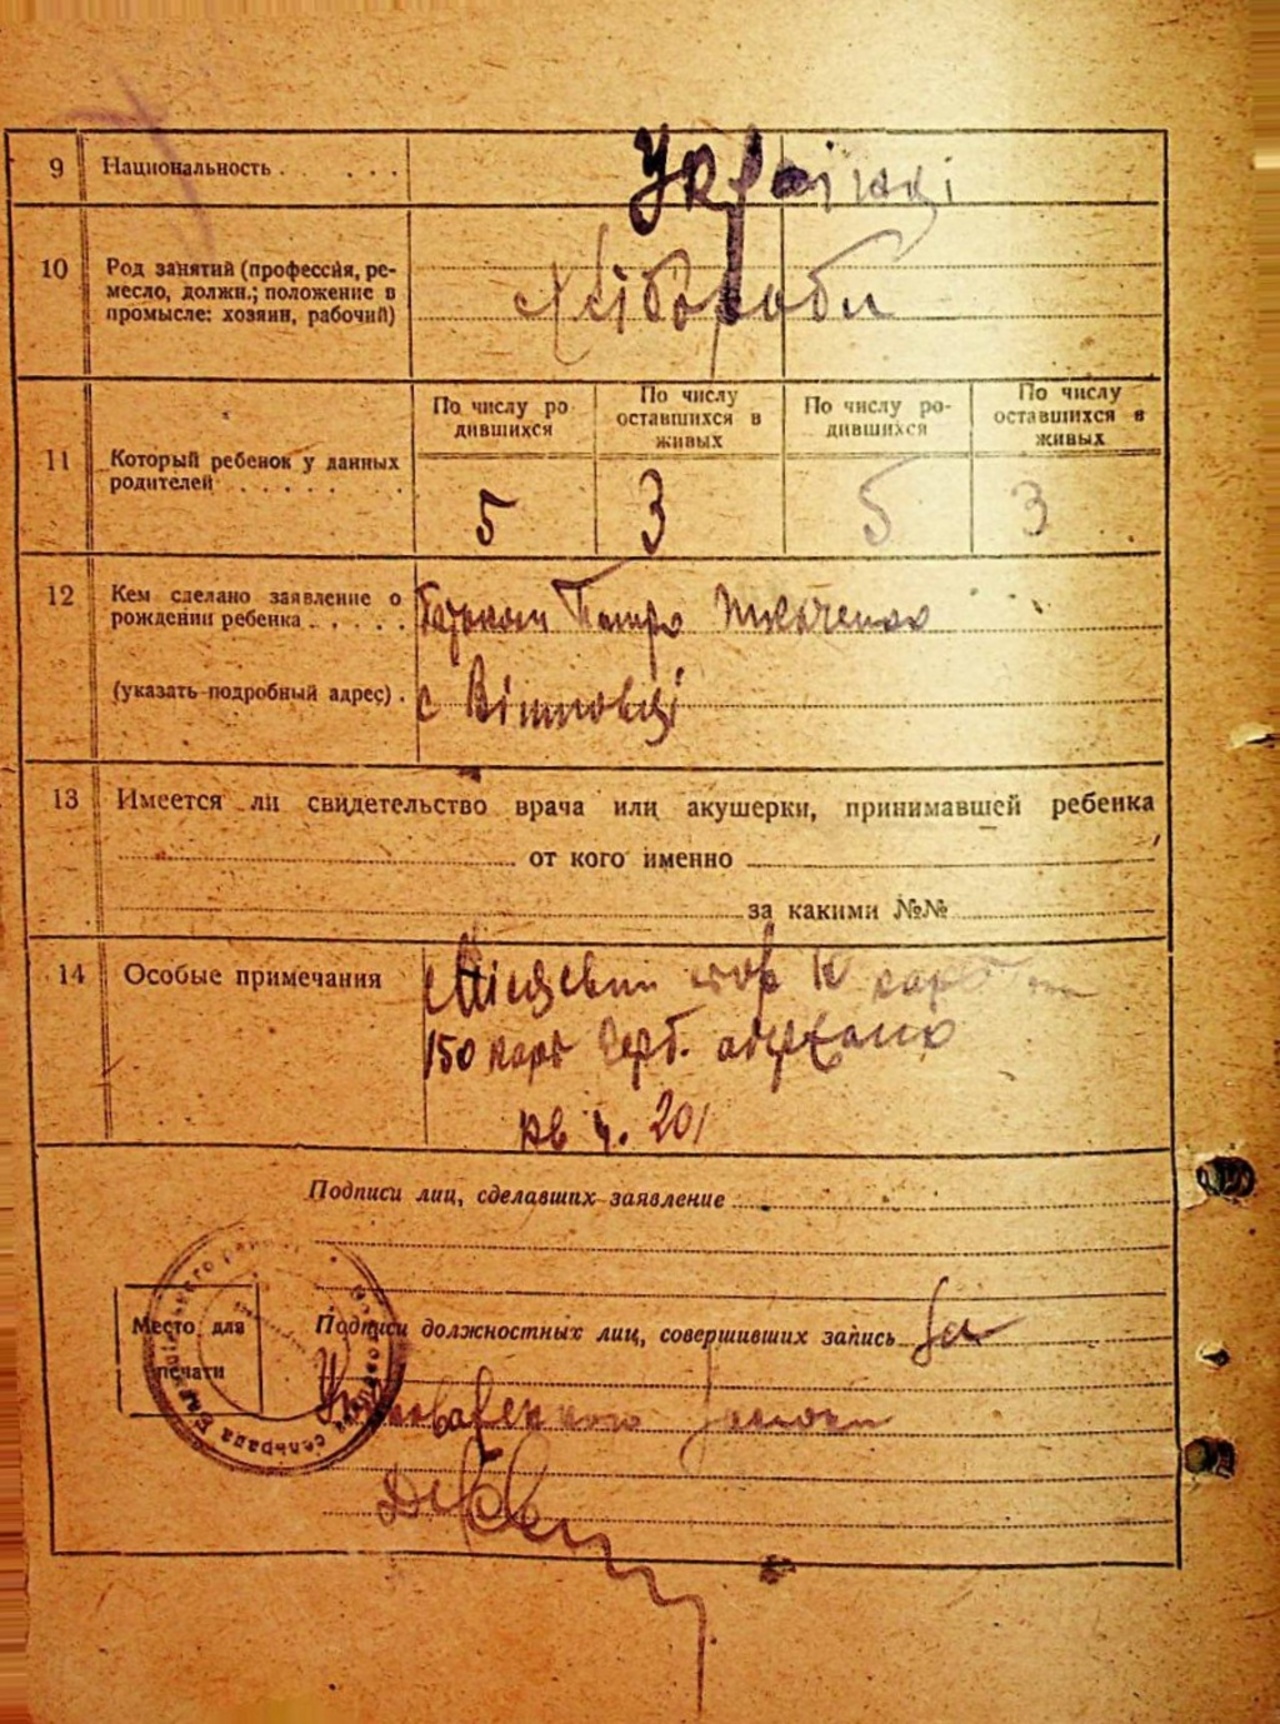 9 Национальность . . . . . Українці
10 Род занятий (профессия, ре-
месло, должн.; положение в
промысле: хозяин, рабочий)
Хлібороби
По числу ро
дившихся
По числу
оставшихся в
живых
По числу ро-
дившихся
По числу
оставшихся в
живых
11 Который ребенок у данных
родителей . . . . . . .
5 3 5 3
12 Кем сделано заявление о
рождении ребенка . . . . .
Батьком Петро Ткаченко
(указать подробный адрес) .
с
13 Имеется ли свидетельство врача или акушерки, принимавшей ребенка
от кого именно
за какими №№
14 Особые примечания
Місцевий
150 карб герб. одержано
кв ч. 201
Подписи лиц, сделавших заявление
Место для
печати
Подписи должностных лиц, совершивших запись За
сельрада